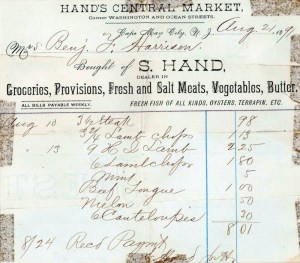 HAND'S CENTRAL MARKET,
Corner WASHINGTON AND OCEAN STREETS.
Cape May City, N. J. Aug 2, 189
Mrs Benj. F Harrison
Bought of S. HAND,
DEALER IN
Groceries, Provisions, Fresh and Salt Meats, Vegetables, Butter.
ALL BILLS PAYABLE WEEKLY. FRESH FISH OF ALL KINDS, OYSTERS, TERRAPIN, ETC.
Aug 10 Steak 98
Lamb Chops 1 13
" 13 9 H Q Lamb 2 25
6 Lamb Chops 1 80
Mint 5
Beef Tongue 1 00
Melon 50
Canteloupes 30
8 01
8/24 Recd Paymt
S. Hand